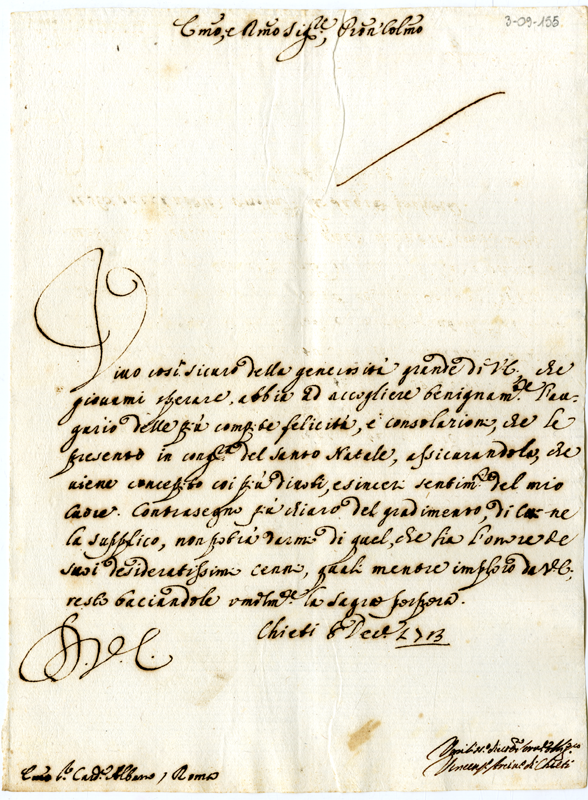 3-09-155
Emo, e Rmo Sig.re, Pron Colmo
Vivo così sicuro della generosità grande di V.E., che
giovami sperare, abbia ad accogliere benignam.te l'au-
gurio delle più compite felicità, e consolazioni, che le
presento in cong.ra del Santo Natale, assicurandola, che
viene concepito coi più divoti, e sinceri sentim.ti del mio
cuore. Contrasegno più chiaro del gradimento, di cui ne
la supplico, non potrà darmi di quel, che sia l'onore de
suoi desideratissimi cenni, quali mentre imploro da V.E.
resto baciandole umilm.te la sagra porpora.
Chieti 8 Decē 1713
D. V. E.
Emo S.r Card. Albano, Roma
Vincenzo Arciv.o di Chieti